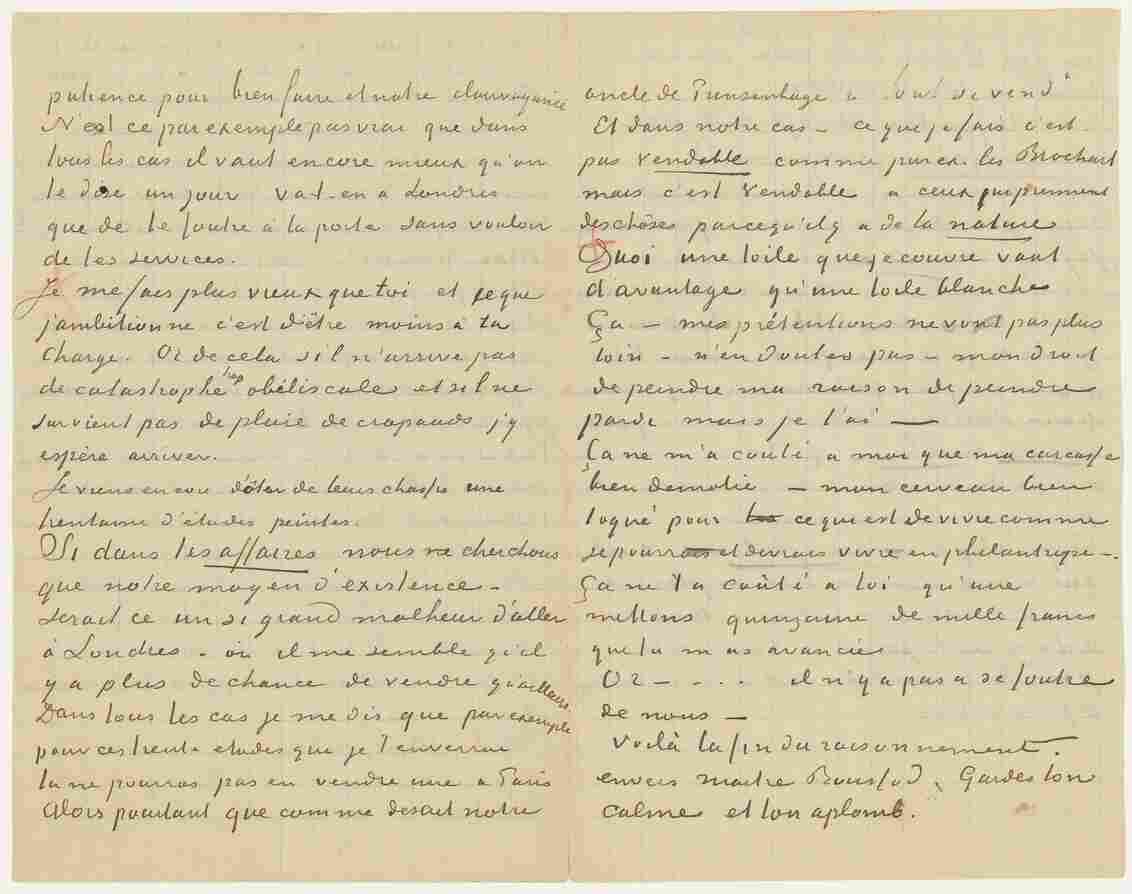 patience pour bien faire et notre clairvoyance
N'est ce par exemple pas vrai que dans
tous les cas il vaut encore mieux qu'on
te dise un jour va t-en à Londres
que de te foutre à la porte sans vouloir
de tes services.
Je me fais plus vieux que toi et ce que
j'ambitionne c'est d'être moins à ta
charge. Or de cela s'il n'arrive pas
de catastrophe trop obéliscale et s'il ne
survient pas de pluie de crapauds j'y
espère arriver.
Je viens encore d'ôter de leurs chassis une
trentaine d'études peintes.
Si dans les affaires nous ne cherchons
que notre moyen d'existence -
serait ce un si grand malheur d'aller
à Londres - où il me semble qu'il
y a plus de chance de vendre qu'ailleurs.
Dans tous les cas je me dis que par exemple
pour ces trente etudes que je t'enverrai
tu ne pourras pas en vendre une a Paris
Alors pourtant que comme desait notre
oncle de Prinsenhage a
Et dans notre cas - ce que je fais c'est
pas vendable comme par ex. les Brochart
mais c'est vendable a ceux qui prennent
des chôses parcequ'il y a de la nature
Quoi une toile que je couvre vaut
d'avantage qu'une toile blanche
Ça - mes prétentions ne vont pas plus
loin - n'en doutes pas - mon droit
de peindre ma raison de peindre
pardi mais je l'ai —
Ça ne m'a couté a moi que ma carcasse
bien demolie - mon cerveau bien
toqué pour ce qui est de vivre comme
je pourrais et devrais vivre en philantrope -.
Ça ne t'a coûté a toi qu'une
mettons quinzaine de mille francs
que tu m'as avancés
Or - . . . il n'y a pas a se foutre
de nous -
Voilà la fin du raisonnement.
envers maitre Boussod. Gardes ton
calme et ton aplomb.